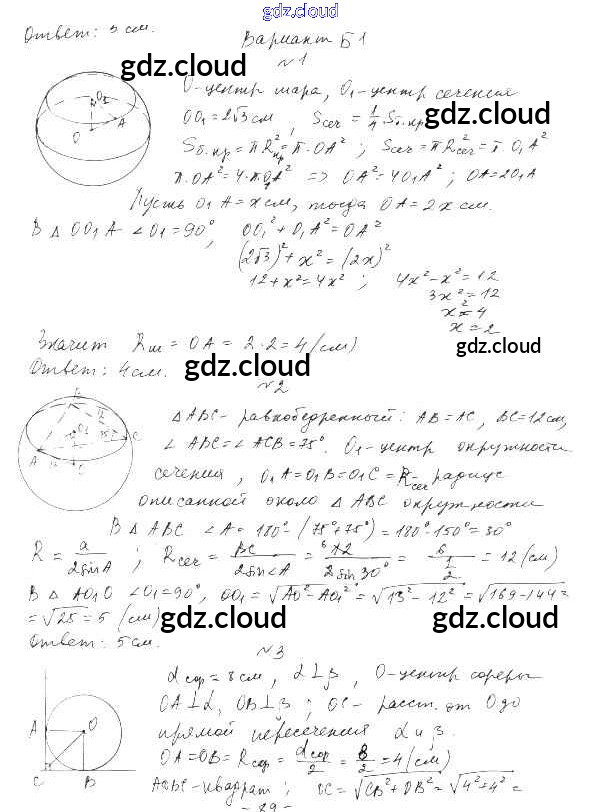 gdz.cloud
Ответ: 5 см.
Вариант Б1
№1
O-центр шара, O₁-центр сечения
OO₁ = 2√3 см, Sсеч = 1/4 Sб.кр
Sб.кр = πR²кр = π·OA²; Sсеч = πR²сеч = π·O₁A²
π·OA² = 4·πO₁A² => OA² = 4O₁A²; OA = 2O₁A
Пусть O₁A = x см, тогда OA = 2x см.
В △OO₁A - ∠O₁ = 90°, OO₁² + O₁A² = OA²
(2√3)² + x² = (2x)²
12 + x² = 4x²; 4x² - x² = 12
3x² = 12
x² = 4
x = 2
Значит Rш = OA = 2·2 = 4 (см)
Ответ: 4 см.
№2
△ABC - равнобедренный: AB = AC, BC = 12 см,
∠ABC = ∠ACB = 75°. O₁-центр окружности
сечения, O₁A = O₁B = O₁C = Rсеч - радиус
описанной около △ABC окружности
В △ABC ∠A = 180° - (75° + 75°) = 180° - 150° = 30°
R = a/2sinA; Rсеч = BC/2sin∠A = 12/2sin30° = 6/(1/2) = 12 (см)
В △AO₁O ∠O₁ = 90°, OO₁ = √AO² - AO₁² = √13² - 12² = √169 - 144 =
= √25 = 5 (см)
Ответ: 5 см.
№3
dсфр = 8 см, α⊥β, O-центр сферы
OA⊥α, OB⊥β; OC - расст. от O до
прямой пересечения α и β.
OA = OB = Rсфр = dсфр/2 = 8/2 = 4 (см)
AOBC - квадрат; OC = √CB² + OB² = √4² + 4² =
- 29 -